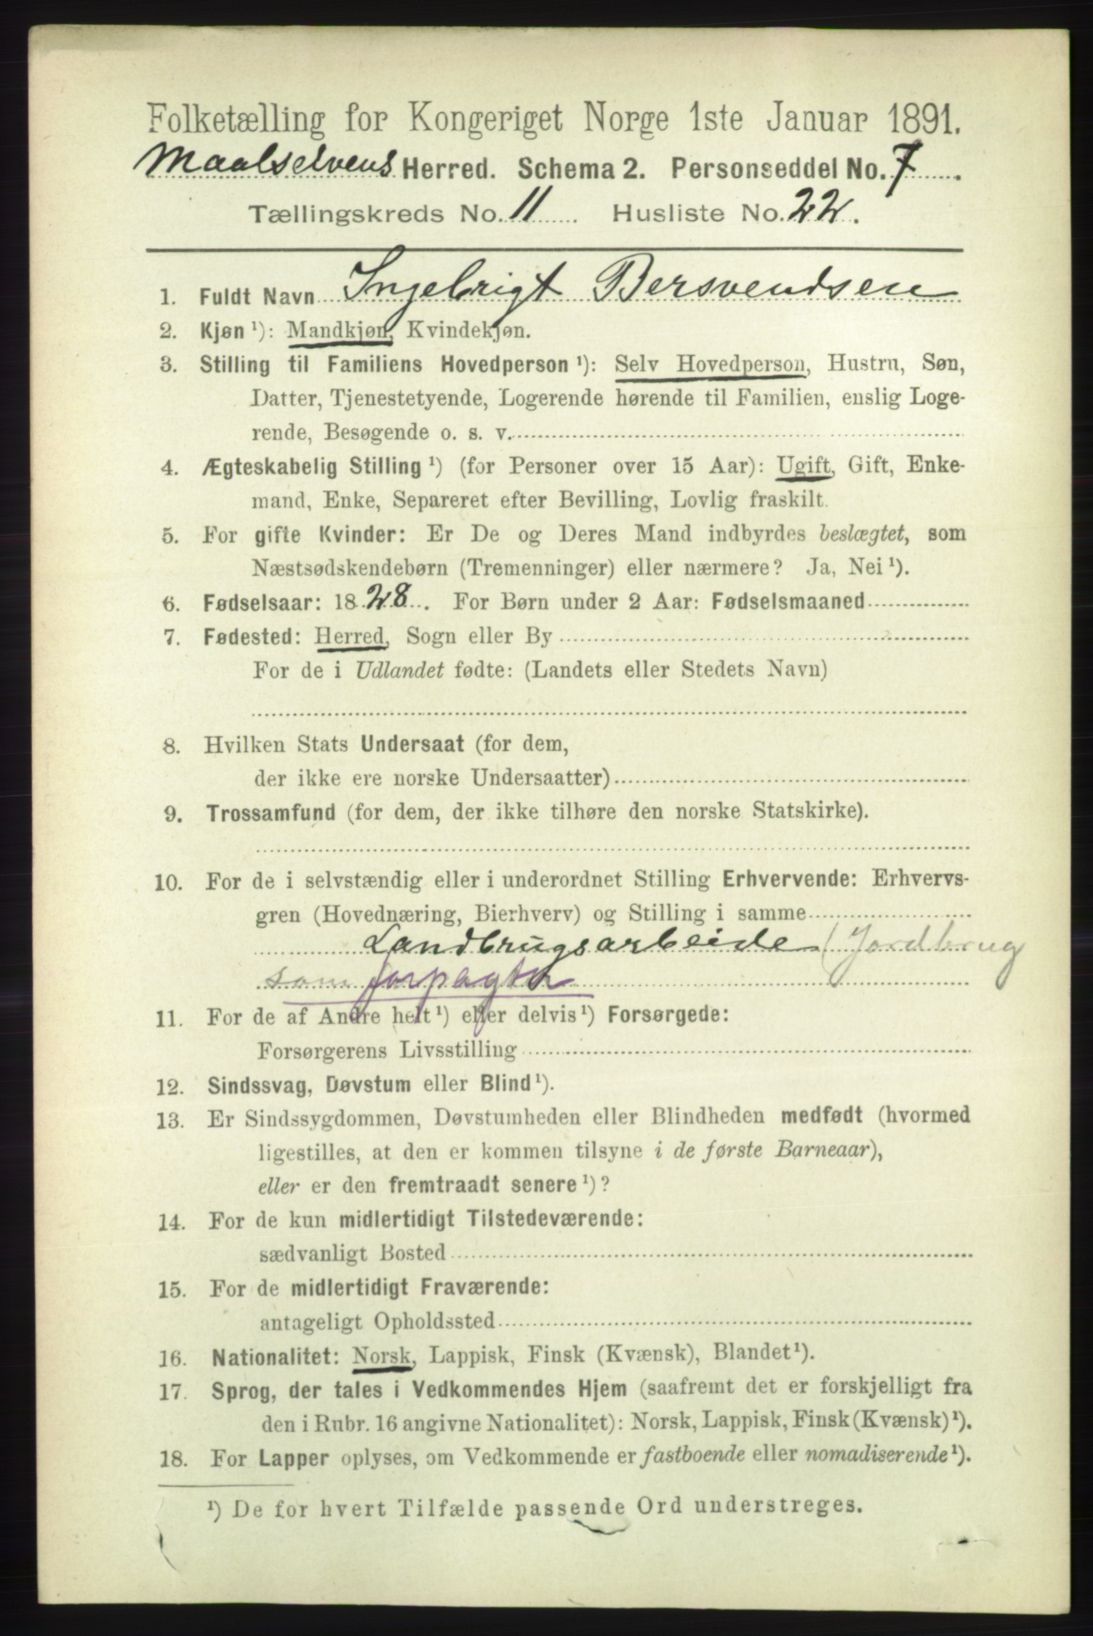 Folketælling for Kongeriget Norge 1ste Januar 1891.
Maalselvens Herred. Schema 2. Personseddel No. 7.
Tællingskreds No. 11. Husliste No. 22.
1. Fuldt Navn Ingebrigt Bersvendsen
2. Kjøn ¹): Mandkjøn, Kvindekjøn.
3. Stilling til Familiens Hovedperson ¹): Selv Hovedperson, Hustru, Søn,
Datter, Tjenestetyende, Logerende hørende til Familien, enslig Loge-
rende, Besøgende o. s. v.
4. Ægteskabelig Stilling ¹) (for Personer over 15 Aar): Ugift, Gift, Enke-
mand, Enke, Separeret efter Bevilling, Lovlig fraskilt.
5. For gifte Kvinder: Er De og Deres Mand indbyrdes beslægtet, som
Næstsødskendebørn (Tremenninger) eller nærmere? Ja, Nei ¹).
6. Fødselsaar: 1828. For Børn under 2 Aar: Fødselsmaaned
7. Fødested: Herred, Sogn eller By
For de i Udlandet fødte: (Landets eller Stedets Navn)
8. Hvilken Stats Undersaat (for dem,
der ikke ere norske Undersaatter)
9. Trossamfund (for dem, der ikke tilhøre den norske Statskirke).
10. For de i selvstændig eller i underordnet Stilling Erhvervende: Erhvervs-
gren (Hovednæring, Bierhverv) og Stilling i samme
Landbrugsarbeide / Jordbrug
som forpagter
11. For de af Andre helt ¹) eller delvis ¹) Forsørgede:
Forsørgerens Livsstilling
12. Sindssvag, Døvstum eller Blind ¹).
13. Er Sindssygdommen, Døvstumheden eller Blindheden medfødt (hvormed
ligestilles, at den er kommen tilsyne i de første Barneaar),
eller er den fremtraadt senere ¹)?
14. For de kun midlertidigt Tilstedeværende:
sædvanligt Bosted
15. For de midlertidigt Fraværende:
antageligt Opholdssted
16. Nationalitet: Norsk, Lappisk, Finsk (Kvænsk), Blandet ¹).
17. Sprog, der tales i Vedkommendes Hjem (saafremt det er forskjelligt fra
den i Rubr. 16 angivne Nationalitet): Norsk, Lappisk, Finsk (Kvænsk) ¹).
18. For Lapper oplyses, om Vedkommende er fastboende eller nomadiserende ¹).
¹) De for hvert Tilfælde passende Ord understreges.